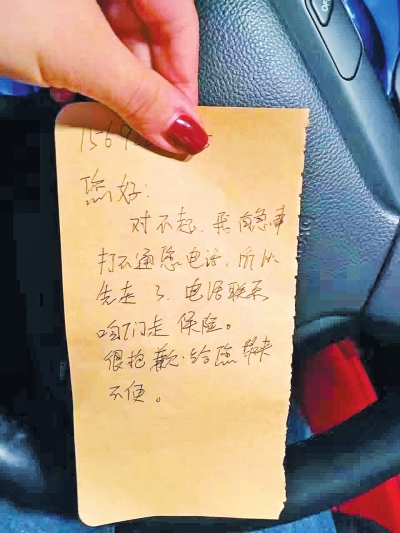 1569
您好:
对不起、我有急事
打不通您电话，所以
先走了、电话联系
咱们走保险。
很抱歉·给您带来
不便。